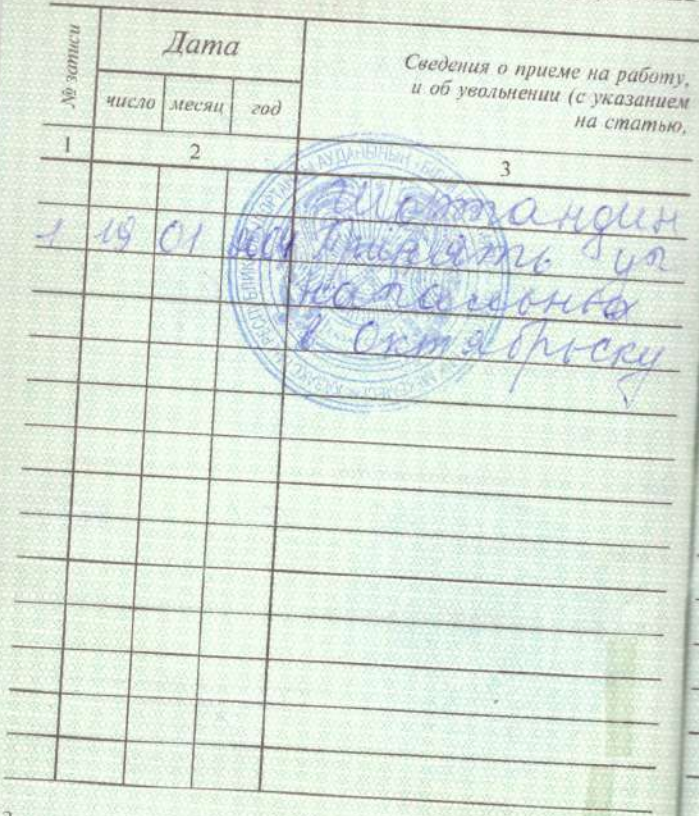 № записи
Дата
Сведения о приеме на работу,
и об увольнении (с указанием
на статью,
число месяц год
1 2 3
Шортандин
1 19 01 Принять уч
начальных
в Октябрьску